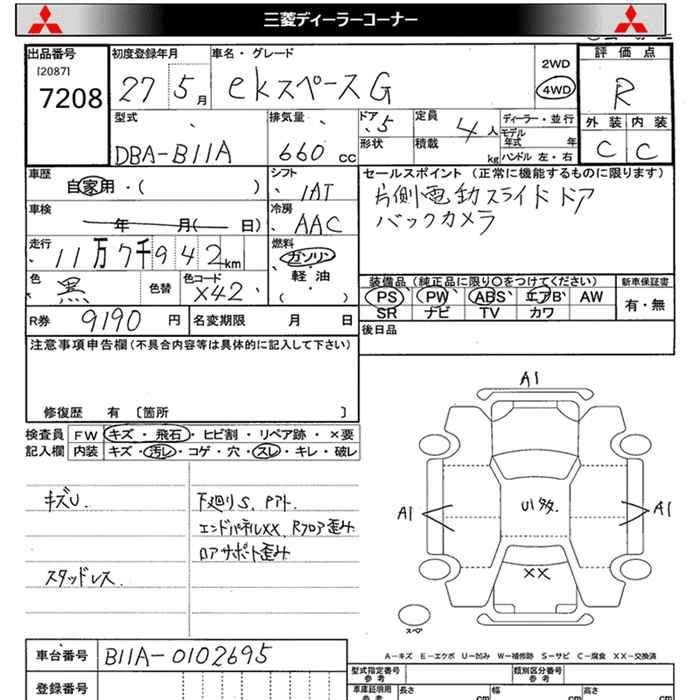 三菱ディーラーコーナー
出品番号
[2087]
7208
初度登録年月
27 5月
車名・グレード
ekスペースG
2WD
4WD
評価点
R
外装 内装
C C
型式
DBA-B11A
排気量
660 cc
ドア 5
形状
定員
4人
積載 kg
ディーラー・並行
モデル年式 年
ハンドル 左・右
車歴
自家用・( )
シフト
1AT
セールスポイント(正常に機能するものに限ります)
片側電動スライドドア
バックカメラ
車検
年 月( 日)
冷房
AAC
走行
11万7千942km
燃料
ガソリン
軽油
( )
色
黒
色替
色コード
X42
装備品(純正品に限り〇をつけてください)
PS PW ABS エアB AW
SR ナビ TV カワ
新車保証書
有・無
R券 9190円
名変期限 月 日
後日品
注意事項申告欄(不具合内容等は具体的に記入して下さい)
修復歴 有 〔箇所 〕
検査員
記入欄
FW キズ・飛石・ヒビ割・リペア跡・×要
内装 キズ・汚レ・コゲ・穴・スレ・キレ・破レ
キズU.
スタッドレス.
下廻りS. Pアト.
エンドパネルXX. Rフロア歪み
ロアサポート歪み
A1
A1
U1多.
A1
XX
スペア
A-キズ E-エクボ U-凹み W-補修跡 S-サビ C-腐食 XX-交換済
車台番号 B11A-0102695
登録番号
型式指定番号
参考
類別区分番号
参考
車庫証明用
参考
長さ cm
幅 cm
高さ cm